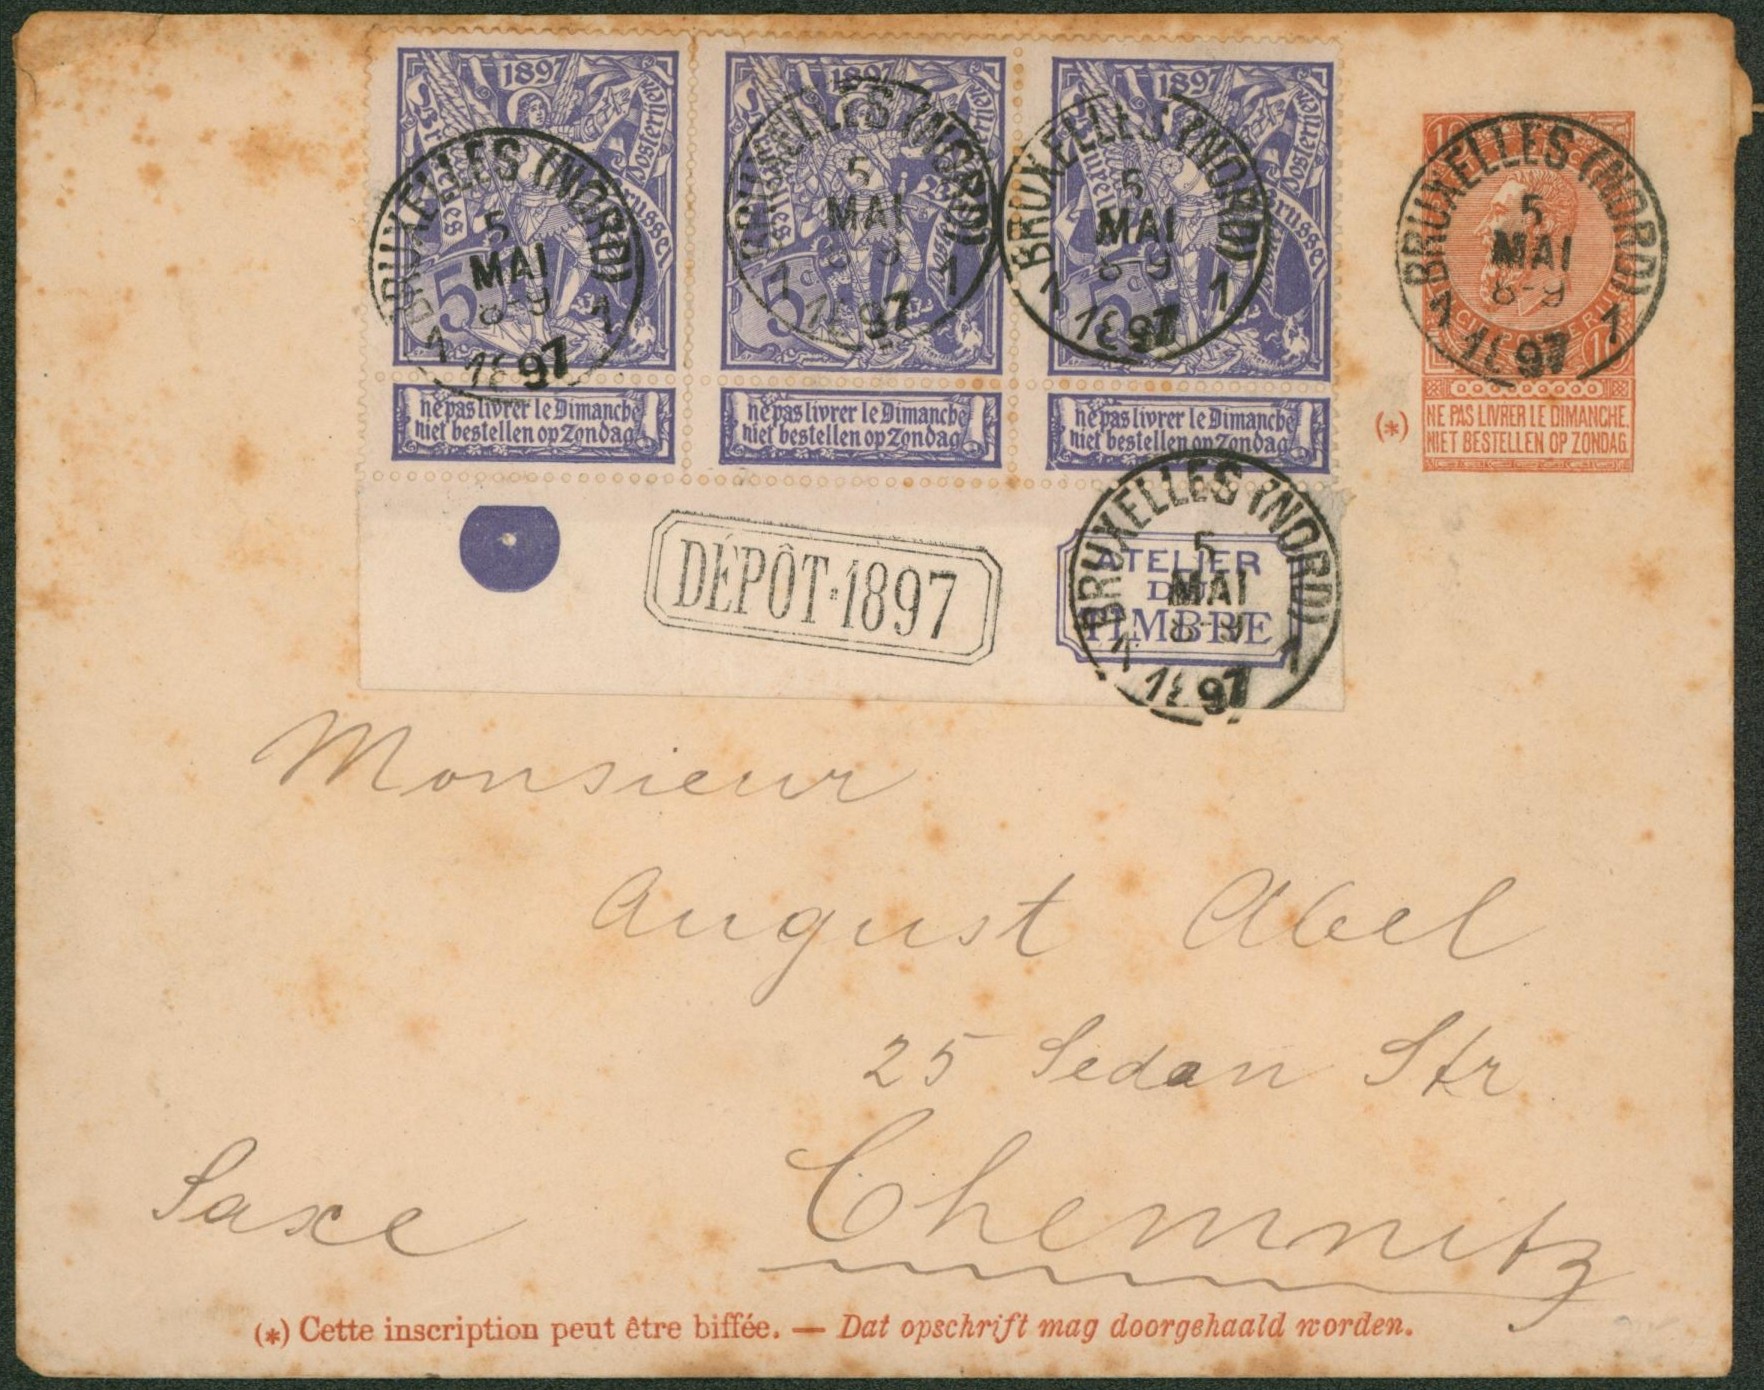 1897
Bruxelles
Posterijen
Brussel
5
ne pas livrer le Dimanche
niet bestellen op Zondag
BRUXELLES (NORD)
5
MAI
8-9
1 1897 1
1897
5c
ne pas livrer le Dimanche
niet bestellen op Zondag
BRUXELLES (NORD)
5
MAI
8-9
1 1897 1
1897
Posterijen
Brussel
ne pas livrer le Dimanche
niet bestellen op Zondag
BRUXELLES (NORD)
5
MAI
8-9
1 1897 1
10
BRUXELLES (NORD)
5
MAI
8-9
1 1897 1
(*) NE PAS LIVRER LE DIMANCHE.
NIET BESTELLEN OP ZONDAG.
DÉPÔT·1897
ATELIER
DU
TIMBRE
BRUXELLES (NORD)
5
MAI
8-9
1 1897 1
Monsieur
August Abel
25 Sedan Str
Saxe Chemnitz
(*) Cette inscription peut être biffée. — Dat opschrift mag doorgehaald worden.